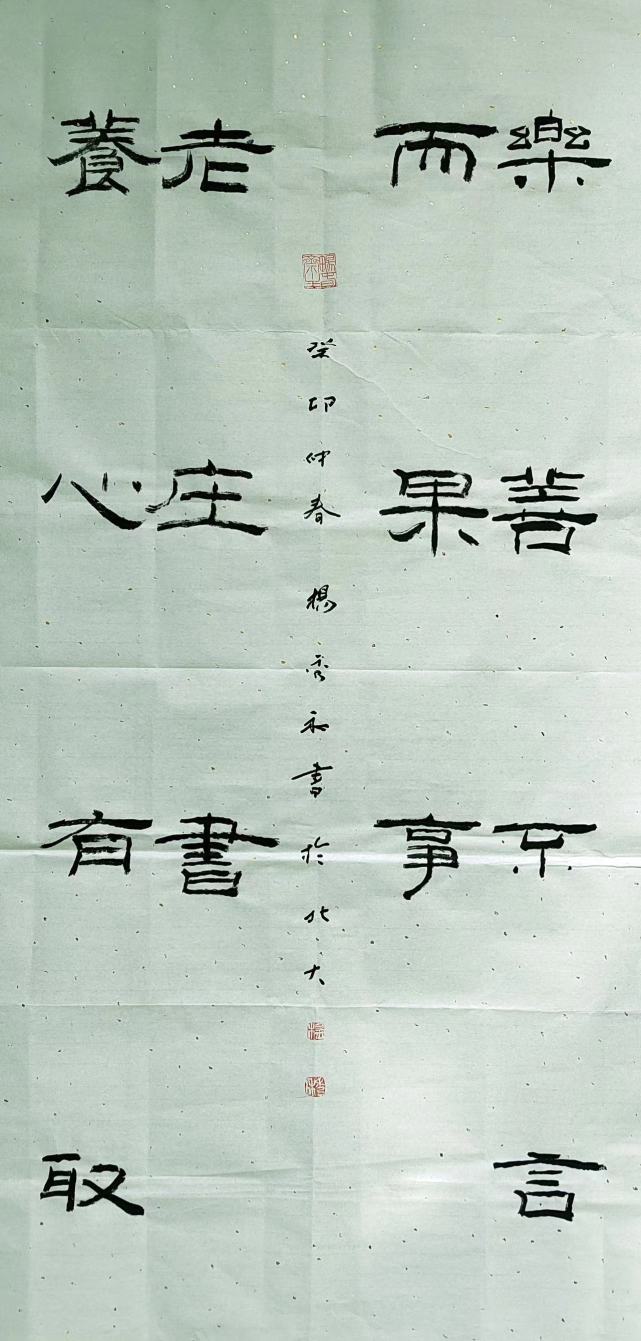 樂善不言
而果事
癸卯仲春楊秀和書於北大
老庄書
養心有取